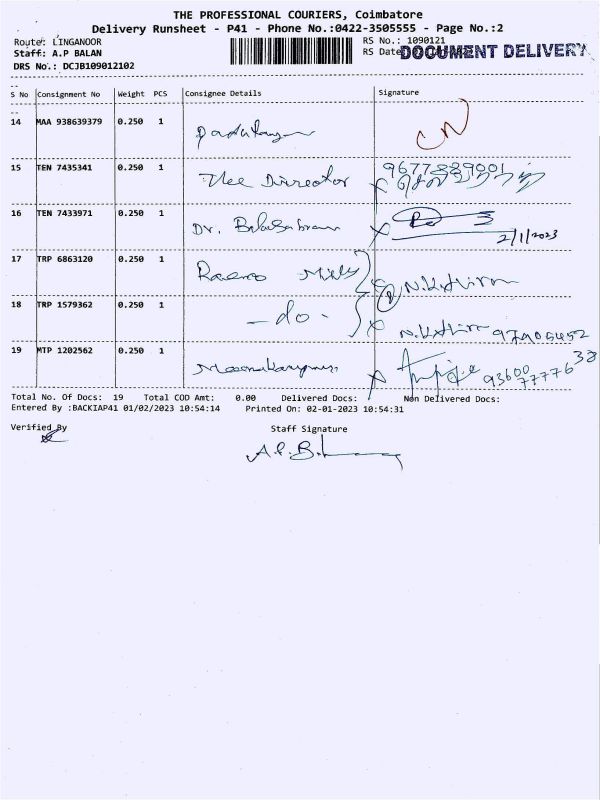 THE PROFESSIONAL COURIERS, Coimbatore
Delivery Runsheet - P41 - Phone No.:0422-3505555 - Page No.:2
Route: LINGANOOR
Staff: A.P BALAN
DRS No.: DCJB109012102
RS No.: 1090121
RS Date
DOCUMENT DELIVERY
S No Consignment No Weight PCS Consignee Details Signature
14 MAA 938639379 0.250 1
15 TEN 7435341 0.250 1 The Director 9677889001
16 TEN 7433971 0.250 1 Dr. Balasubram 2/1/2023
17 TRP 6863120 0.250 1
18 TRP 1579362 0.250 1 - do -
19 MTP 1202562 0.250 1
Total No. Of Docs: 19 Total COD Amt: 0.00 Delivered Docs: Non Delivered Docs:
Entered By :BACKIAP41 01/02/2023 10:54:14 Printed On: 02-01-2023 10:54:31
Verified By Staff Signature